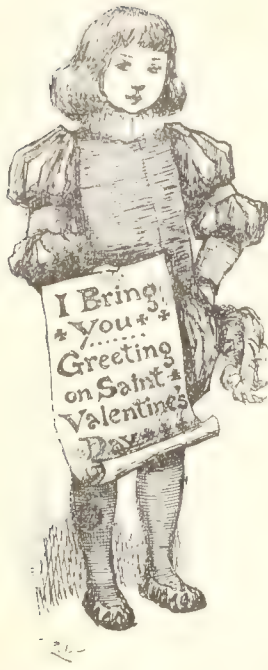 I Bring
You
Greeting
on Saint
Valentine's
Day